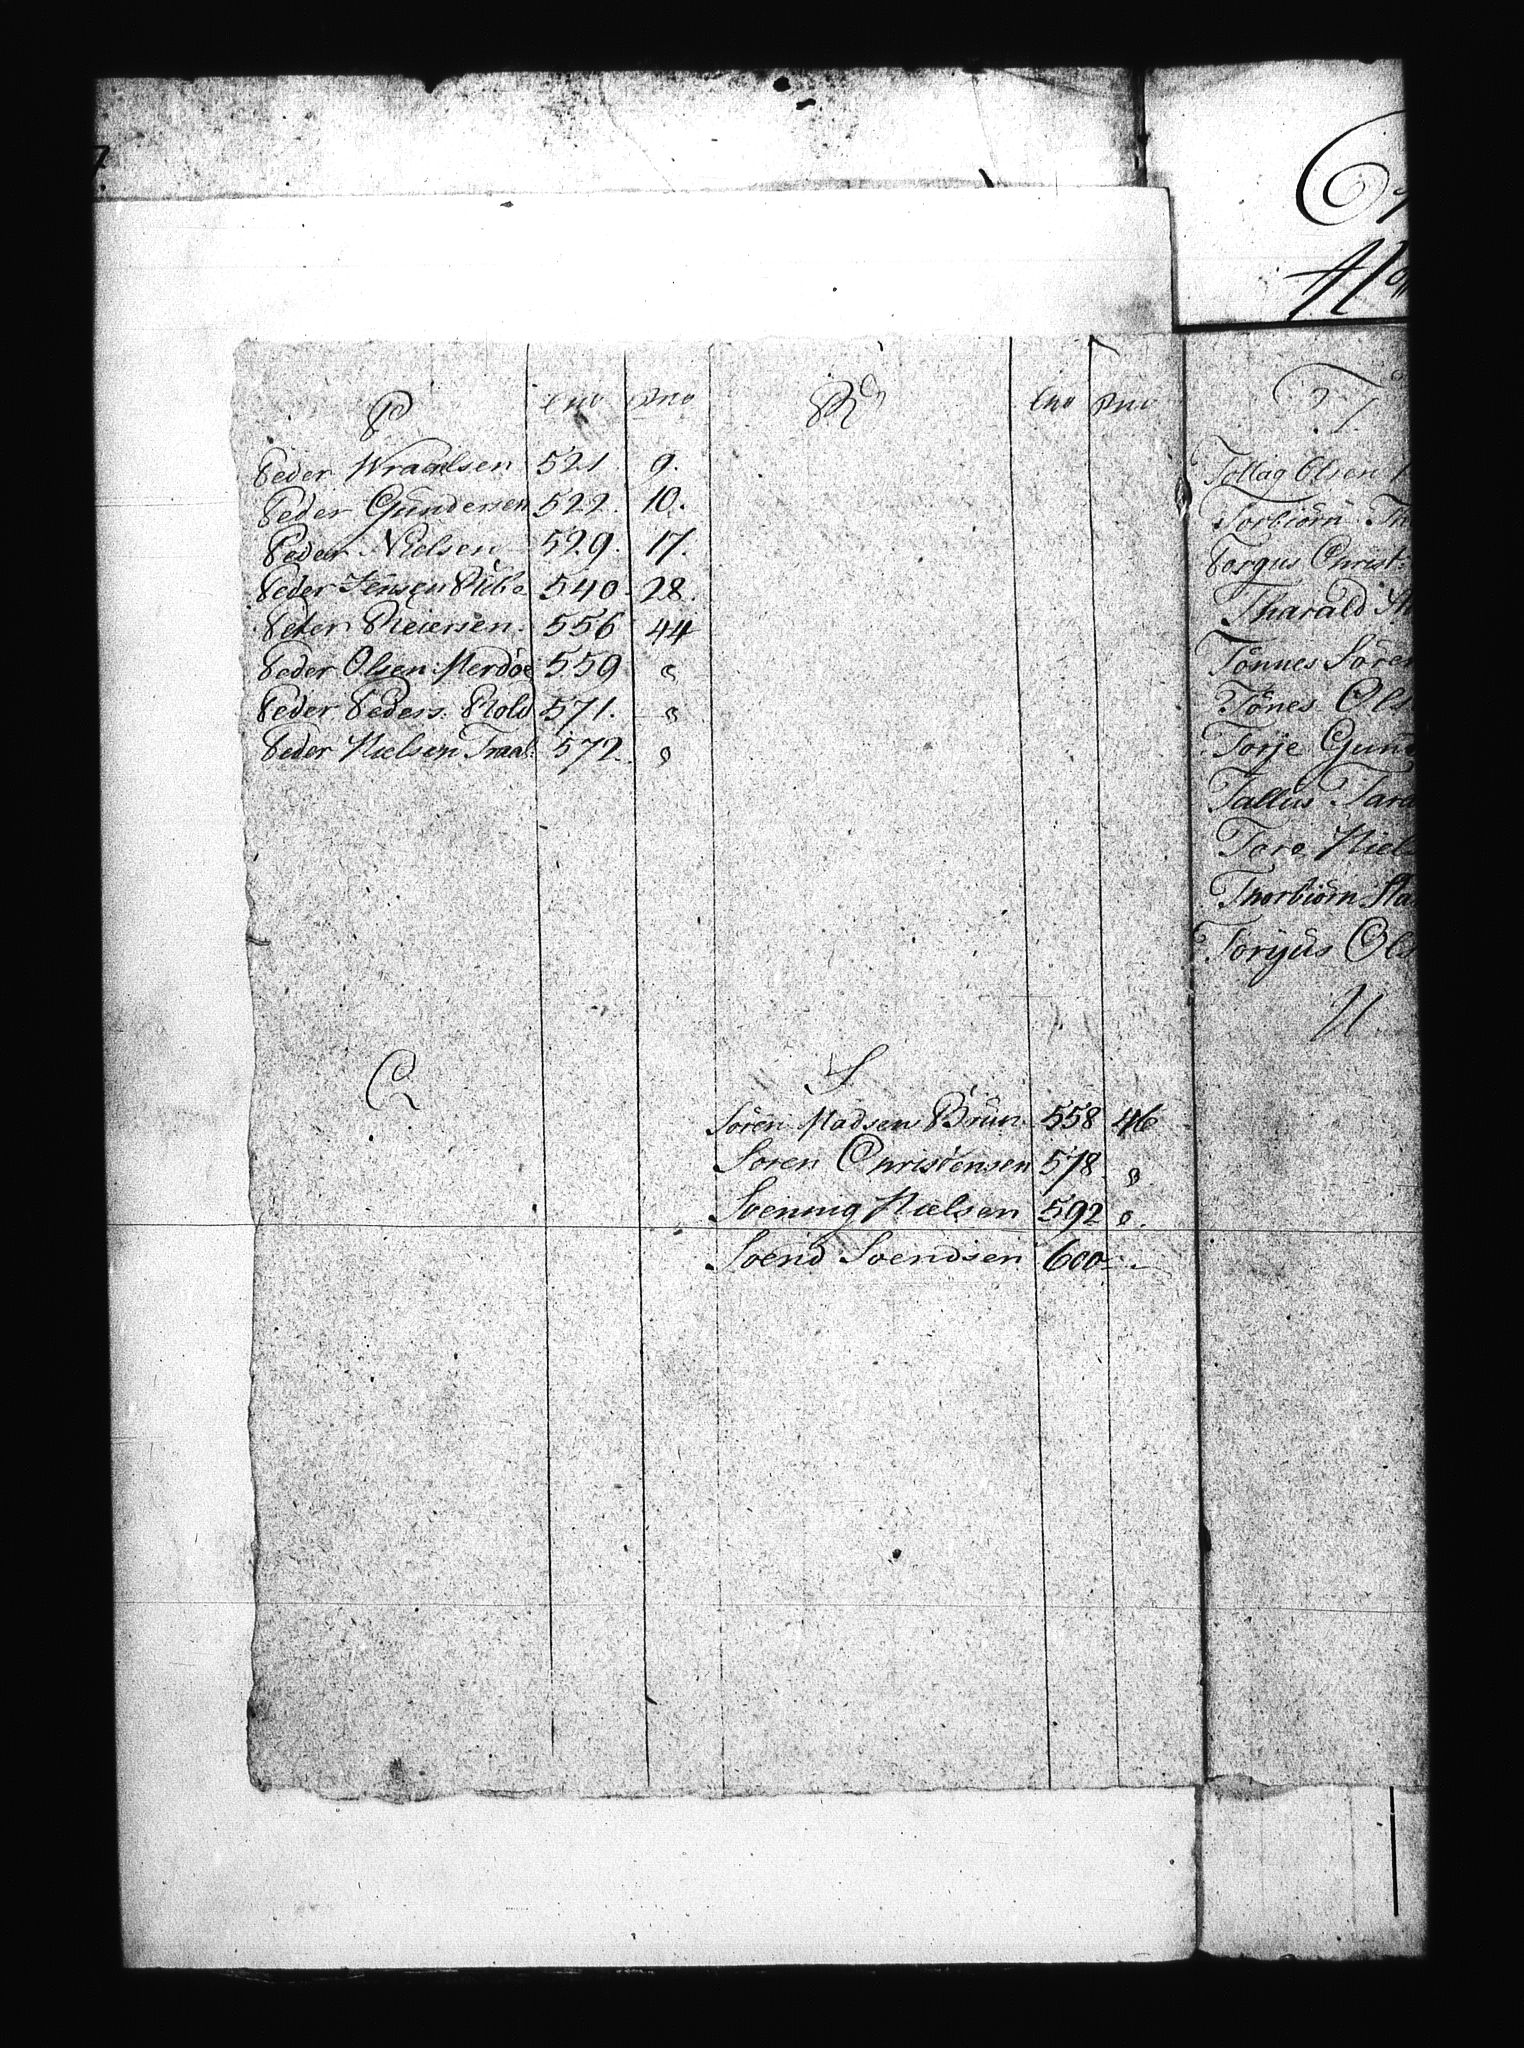 P Eno Pno
Peder Wraalsen 521 9.
Peder Gundersen 522. 10.
Peder Nielsen 529. 17.
Peder Jensen Ribe 540. 28.
Peter Reiersen 556 44
Peder Olsen Merdöe 559 "
Peder Peders. Rold 571. "
Peder Nielsen Traal. 572. "
Q
R Eno Pno
S
Sören Madsen Brün 558 46
Soren Christensen 578 "
Svennig Nielsen 592 "
Svend Svendsen 600
T.
Tollag Olsen
Torbiörn Th
Torgus Christ
Tharald
Tönnes Sören
Tönes Ols
Torje Gun
Tallüs Tara
Tore Niels
Thorbiörn
Torgüs Ols
U